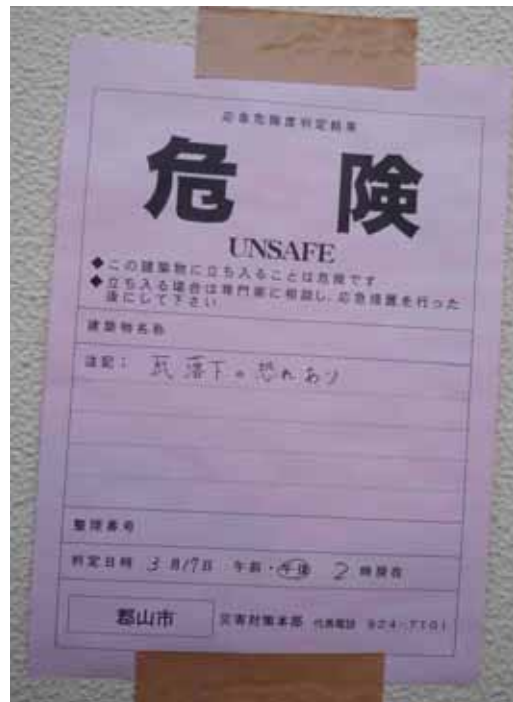 応急危険度判定結果
危険
UNSAFE
◆この建築物に立ち入ることは危険です
◆立ち入る場合は専門家に相談し、応急措置を行った
後にして下さい
建築物名称
注記： 瓦落下の恐れあり
整理番号
判定日時 3月17日 午前・午後 2 時現在
郡山市 災害対策本部 代表電話 924-7101